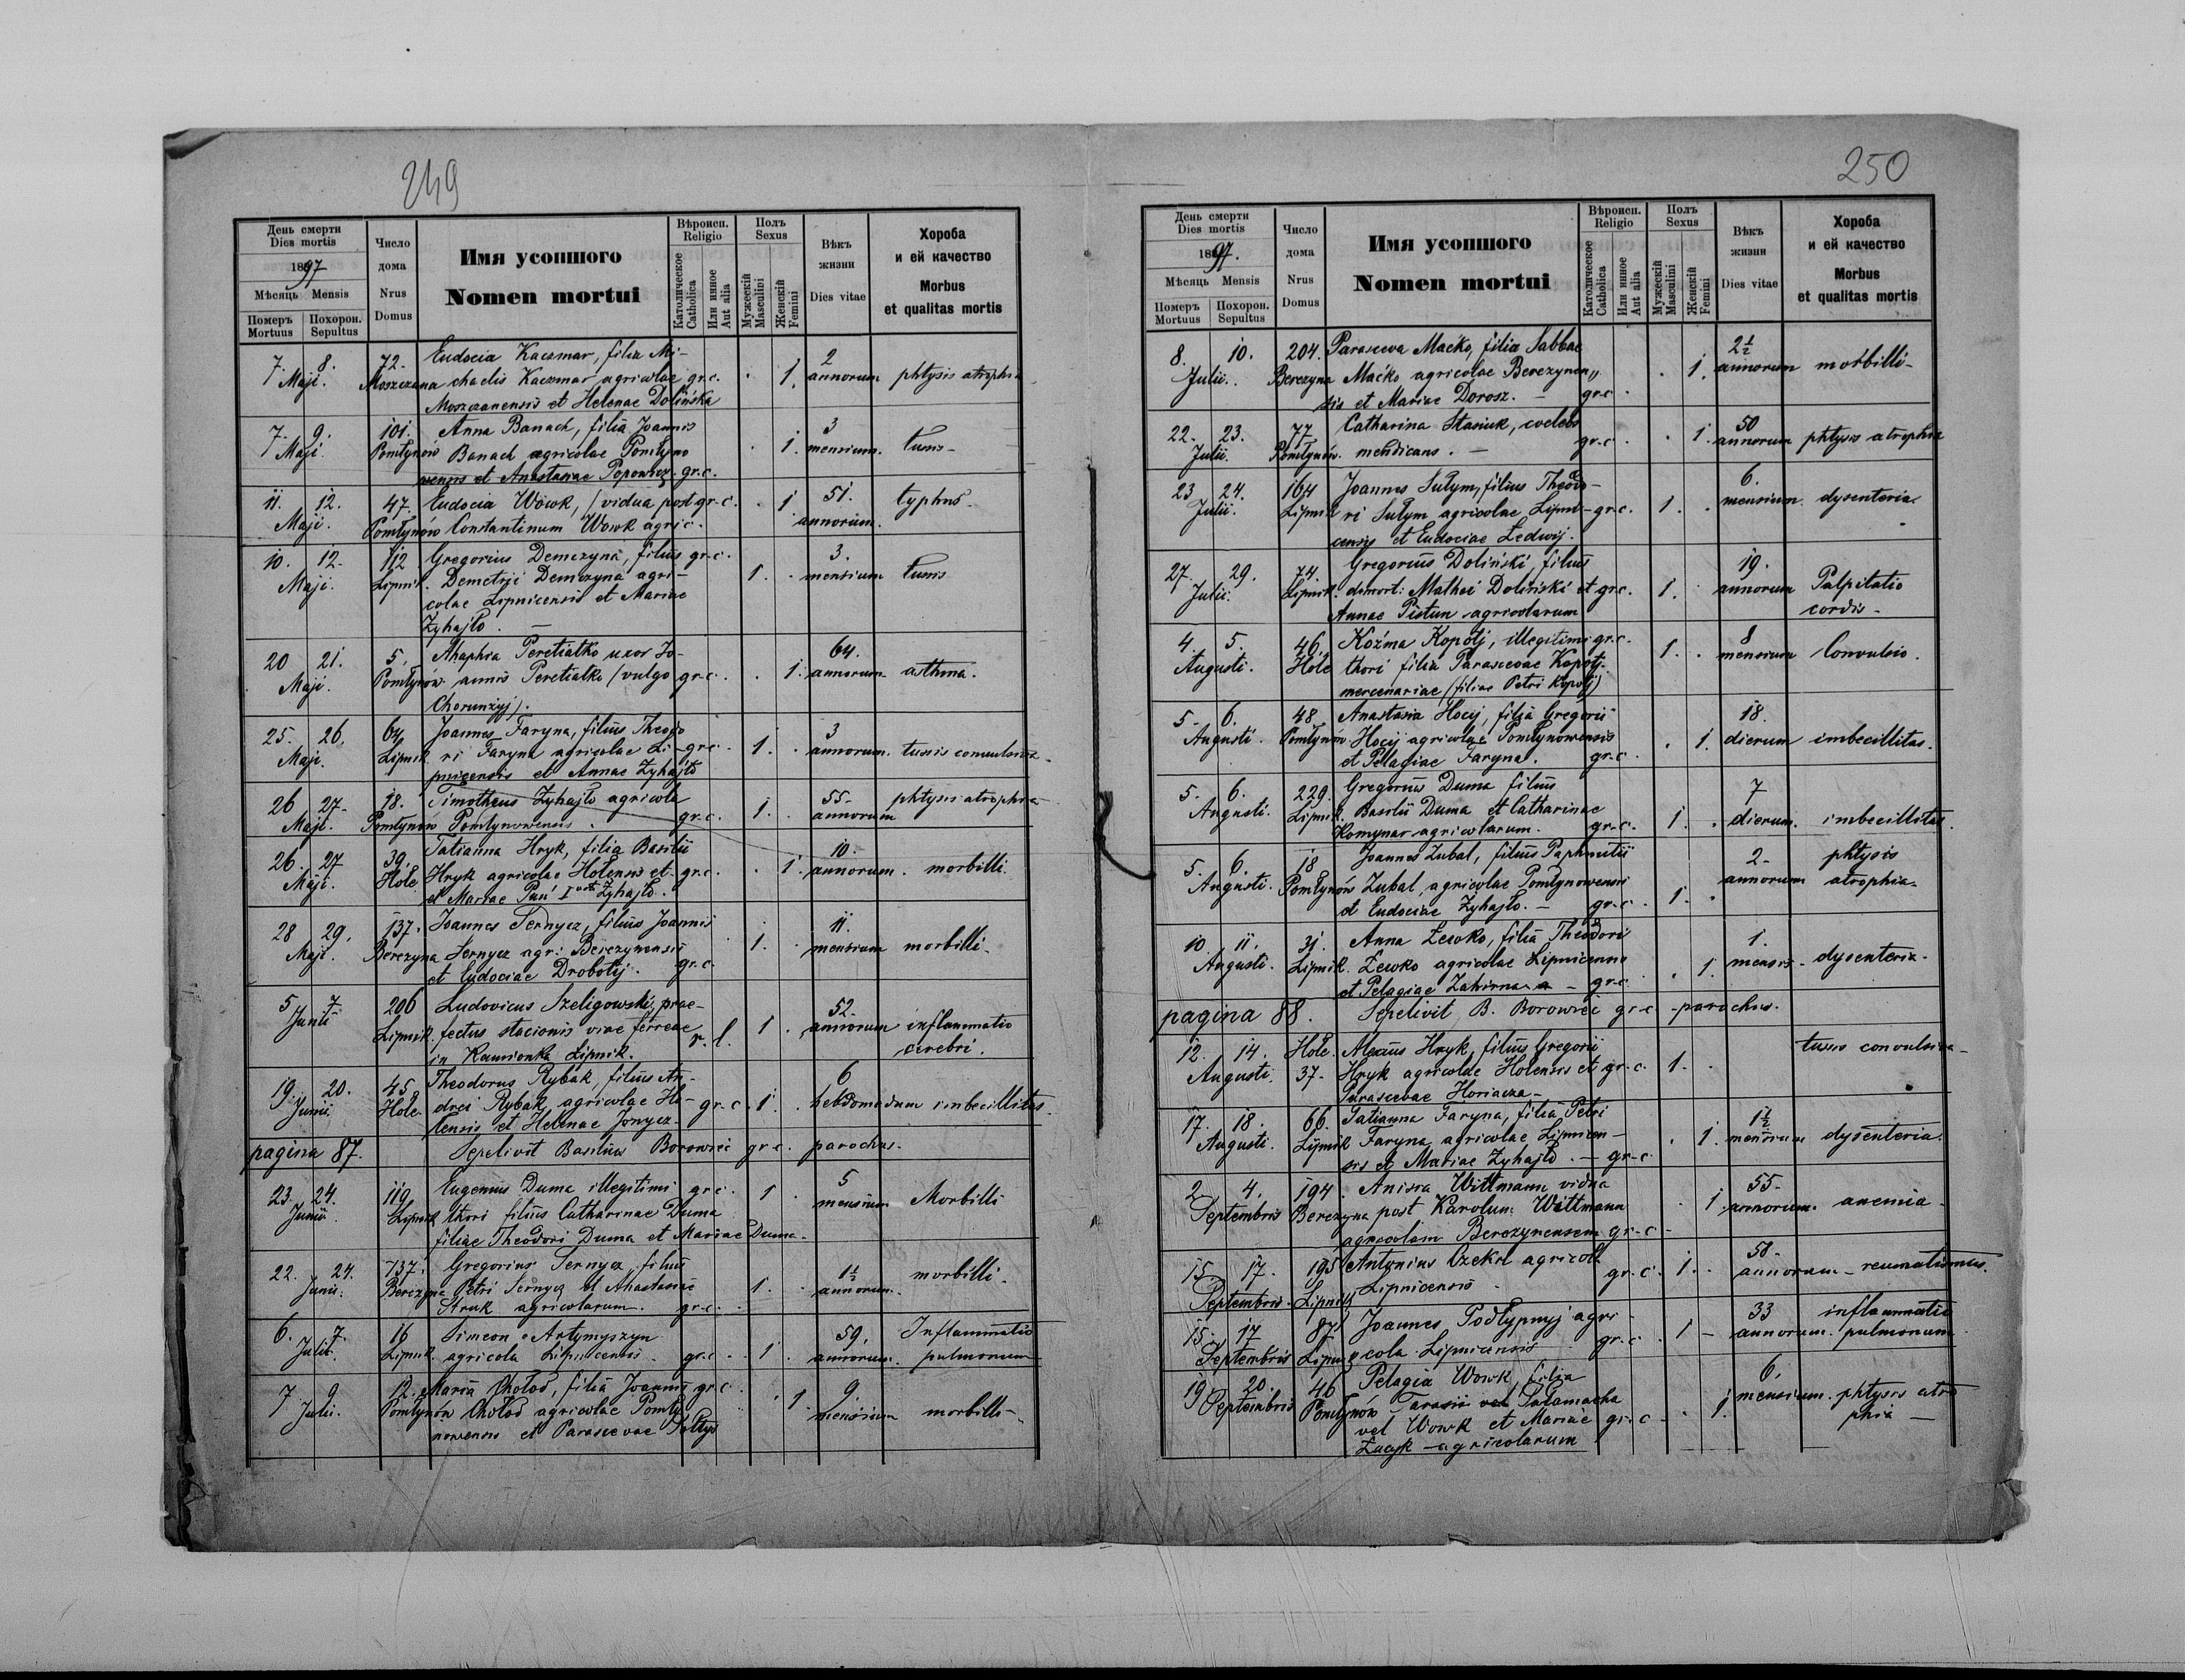 249
День смерти
Dies mortis
1897
Мѣсяць Mensis
Померъ Mortuus
Похорон. Sepultus
Число дома
Nrus Domus
Имя усопшого
Nomen mortui
Вѣроисп. Religio
Католическое Catholica
Или инное Aut alia
Полъ Sexus
Мужескій Masculini
Женскій Femini
Вѣкъ жизни
Dies vitae
Хороба и ей качество
Morbus et qualitas mortis
7. 8. 72. Eudocia Kaczmar, filia Mi- 2
Maji. Moszczana chaelis Kaczmar agricolae gr.c. . 1. annorum phtysis atrophia
Moszczanensis et Helenae Dolińska
7. 9. 101. Anna Banach, filia Joannis 3
Maji. Pomłynów Banach agricolae Pomłyno . 1. mensium. tussis
wensis et Anastasiae Popowicz. gr.c.
11. 12. 47. Eudocia Wowk, /vidua post gr.c. . 1 51. typhus
Maji. Pomłynów Constantinum Wowk agric. annorum.
10. 12. 112 Gregorius Demczyna, filius gr.c. 3.
Maji. Lipnik. Demetrji Demczyna agri- 1. . mensium tussis
colae Lipnicensis et Mariae
Zyhajło. —
20 21. 5. Ahaphia Peretiatko uxor Jo- 64.
Maji. Pomłynow annis Peretiatko (vulgo gr.c. . 1. annorum asthma.
Chorunżyj).
25. 26. 64 Joannes Faryna, filius Theodo 3
Maji. Lipnik ri Faryna agricolae Li- gr.c. 1. . annorum. tussis convulsiva
pnicensis et Annae Zyhajło
26 27. 18. Timotheus Zyhajło agricola 55. phtysis atrophia
Maji. Pomłynów Pomłynowensis. gr.c. 1. . annorum
26. 27 39. Tatianna Hryk, filia Basilii 10.
Maji. Hole Hryk agricolae Holensis et gr.c. . 1. annorum. morbilli
et Mariae Pań I vot Zyhajło.
28 29. 137. Joannes Sernycz, filius Joannis 11.
Maji. Berezyna Sernycz agr. Berezynensis 1. . mensium morbilli
et Eudociae Drobotij. gr.c.
5 7 206 Ludovicus Szeligowski, prae- 52.
Junii Lipnik. fectus stacionis viae ferreae r.l. 1 . annorum inflammatio
in Kamionka Lipnik. cerebri.
19. 20. 45. Theodorus Rybak, filius An- 6
Junii. Hole. drei Rybak agricolae Ho- gr.c. 1. . hebdomadum imbecillitas
lensis et Helenae Jonycz-
pagina 87. Sepelivit Basilius Borowiec gr.c. parochus.
23. 24. 119 Eugenius Duma illegitimi gr.c. 1 . 5
Junii. Lipnik thori filius Catharinae Duma mensium Morbilli
filiae Theodori Duma et Mariae Duma.
22. 24. 137. Gregorius Sernycz, filius 1½ morbilli
Junii. Berezyna Petri Sernycz et Anastasiae 1. . annorum.
Struk agricolarum. gr.c.
6. 7. 16 Simeon Artymyszyn 59. Inflammatio
Julii. Lipnik. agricola Lipnicensis. gr.c. 1. . annorum. pulmonum
7 9 12. Maria Chołod, filia Joannis gr.c. 9
Julii. Pomłynów Chołod agricolae Pomły- . 1. mensium morbilli-
nowensis et Parascevae Sołtys
250
День смерти
Dies mortis
1897.
Мѣсяць Mensis
Померъ Mortuus
Похорон. Sepultus
Число дома
Nrus Domus
Имя усопшого
Nomen mortui
Вѣроисп. Religio
Католическое Catholica
Или инное Aut alia
Полъ Sexus
Мужескій Masculini
Женскій Femini
Вѣкъ жизни
Dies vitae
Хороба и ей качество
Morbus et qualitas mortis
8. 10. 204. Parasceva Maćko, filia Sabbae 2½
Julii. Berezyna Maćko agricolae Berezynen„ . 1. annorum morbilli-
sis et Mariae Dorosz. — gr.c.
22. 23. 77 Catharina Stasiuk, coelebs 50
Julii. Pomłynów. mendicans. — gr.c. . 1. annorum phtysis atrophia
23 24. 164 Joannes Sułym, filius Theodo- 6.
Julii. Lipnik ri Sułym agricolae Lipni- gr.c. 1. . mensium dysenteria
censis et Eudociae Ledwij.
27. 29. 74. Gregorius Doliński, filius 19.
Julii. Lipnik. demort: Mathei Doliński et gr.c. 1. . annorum Palpitatio
Annae Pistun agricolarum cordis-
4. 5. 46. Kożma Kopotj, illegitimi gr.c. 8
Augusti. Hole thori filia Parascevae Kopotj 1. . mensium Convulsio.
mercenariae (filiae Petri Kopotj)
5. 6. 48. Anastasia Hocij, filia Gregorii 18.
Augusti. Pomłynów Hocij agricolae Pomłynowensis . 1. dierum imbecillitas.
et Pelagiae Faryna. gr.c.
5. 6. 229. Gregorius Duma filius 7
Augusti. Lipnik. Basilii Duma et Catharinae 1. . dierum. imbecillitas.
Komynar agricolarum. gr.c.
5. 6. 18 Joannes Zubal, filius Paphnutii 2- phtysis
Augusti. Pomłynów Zubal, agricolae Pomłynowensis 1. . annorum atrophia.
et Eudociae Zyhajło. — gr.c.
10 11. 31. Anna Lewko, filia Theodori 1.
Augusti. Lipnik. Lewko agricolae Lipnicensis . 1. mensis. dysenteria.
et Pelagiae Zahirna — gr.c.
pagina 88. Sepelivit B. Borowiec gr.c. parochus.
12. 14. Hole. Alexius Hryk, filius Gregorii tussis convulsiva
Augusti. 37. Hryk agricolae Holensis et gr.c. 1. .
Parascevae Horiacza-
17. 18. 66. Tatianna Faryna, filia Petri 1½
Augusti. Lipnik Faryna, agricolae Lipnicen- . 1. mensium dysenteria.
sis et Mariae Zyhajło. — gr.c.
2 4. 194. Anisia Wittmann vidua 55.
Septembris Berezyna post Karolum Wittmann . 1. annorum. anemia.
agricolam Berezynensem gr.c.
15. 17. 195 Antonius Czekil agricola 58.
Septembris. Lipnik Lipnicensis. gr.c. 1. . annorum. reumatismus.
15. 17 87 Joannes Podłypnyj agri- 33 inflammatio
Septembris Lipnik cola Lipnicensis gr.c. 1 — annorum. pulmonum
19 20. 46 Pelagia Wowk, filia 6.
Septembris Pomłynów Tarasii vel Sałamacha . 1. mensium. phtysis atro
vel Wowk et Mariae gr.c. phia —
Łucyk agricolarum